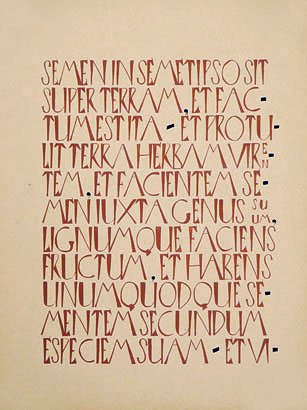 SEMEN IN SEMETIPSO SIT
SUPER TERRAM, ET FAC-
TUM EST ITA - ET PROTU-
LIT TERRA HERBAM VIREN-
TEM, ET FACIENTEM SE-
MEN IUXTA GENUS SUUM,
LIGNUMQUE FACIENS
FRUCTUM, ET HABENS
UNUMQUODQUE SE-
MENTEM SECUNDUM
ESPECIEM SUAM - ET VI-